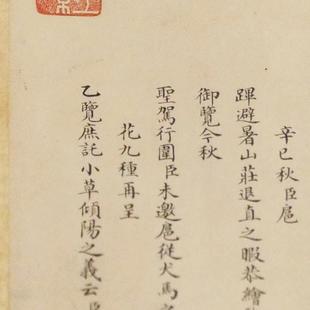 辛巳秋臣扈
蹕避暑山莊退直之暇恭繪
御覽今秋
聖駕行圍臣未邀扈從犬馬
花九種再呈
乙覽庶託小草傾陽之義云